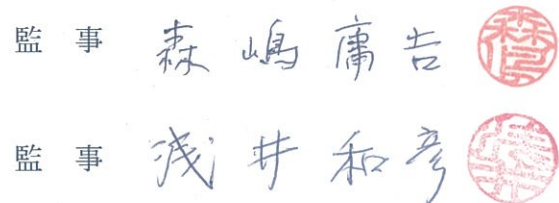 監事 森嶋庸吉
監事 浅井和彦